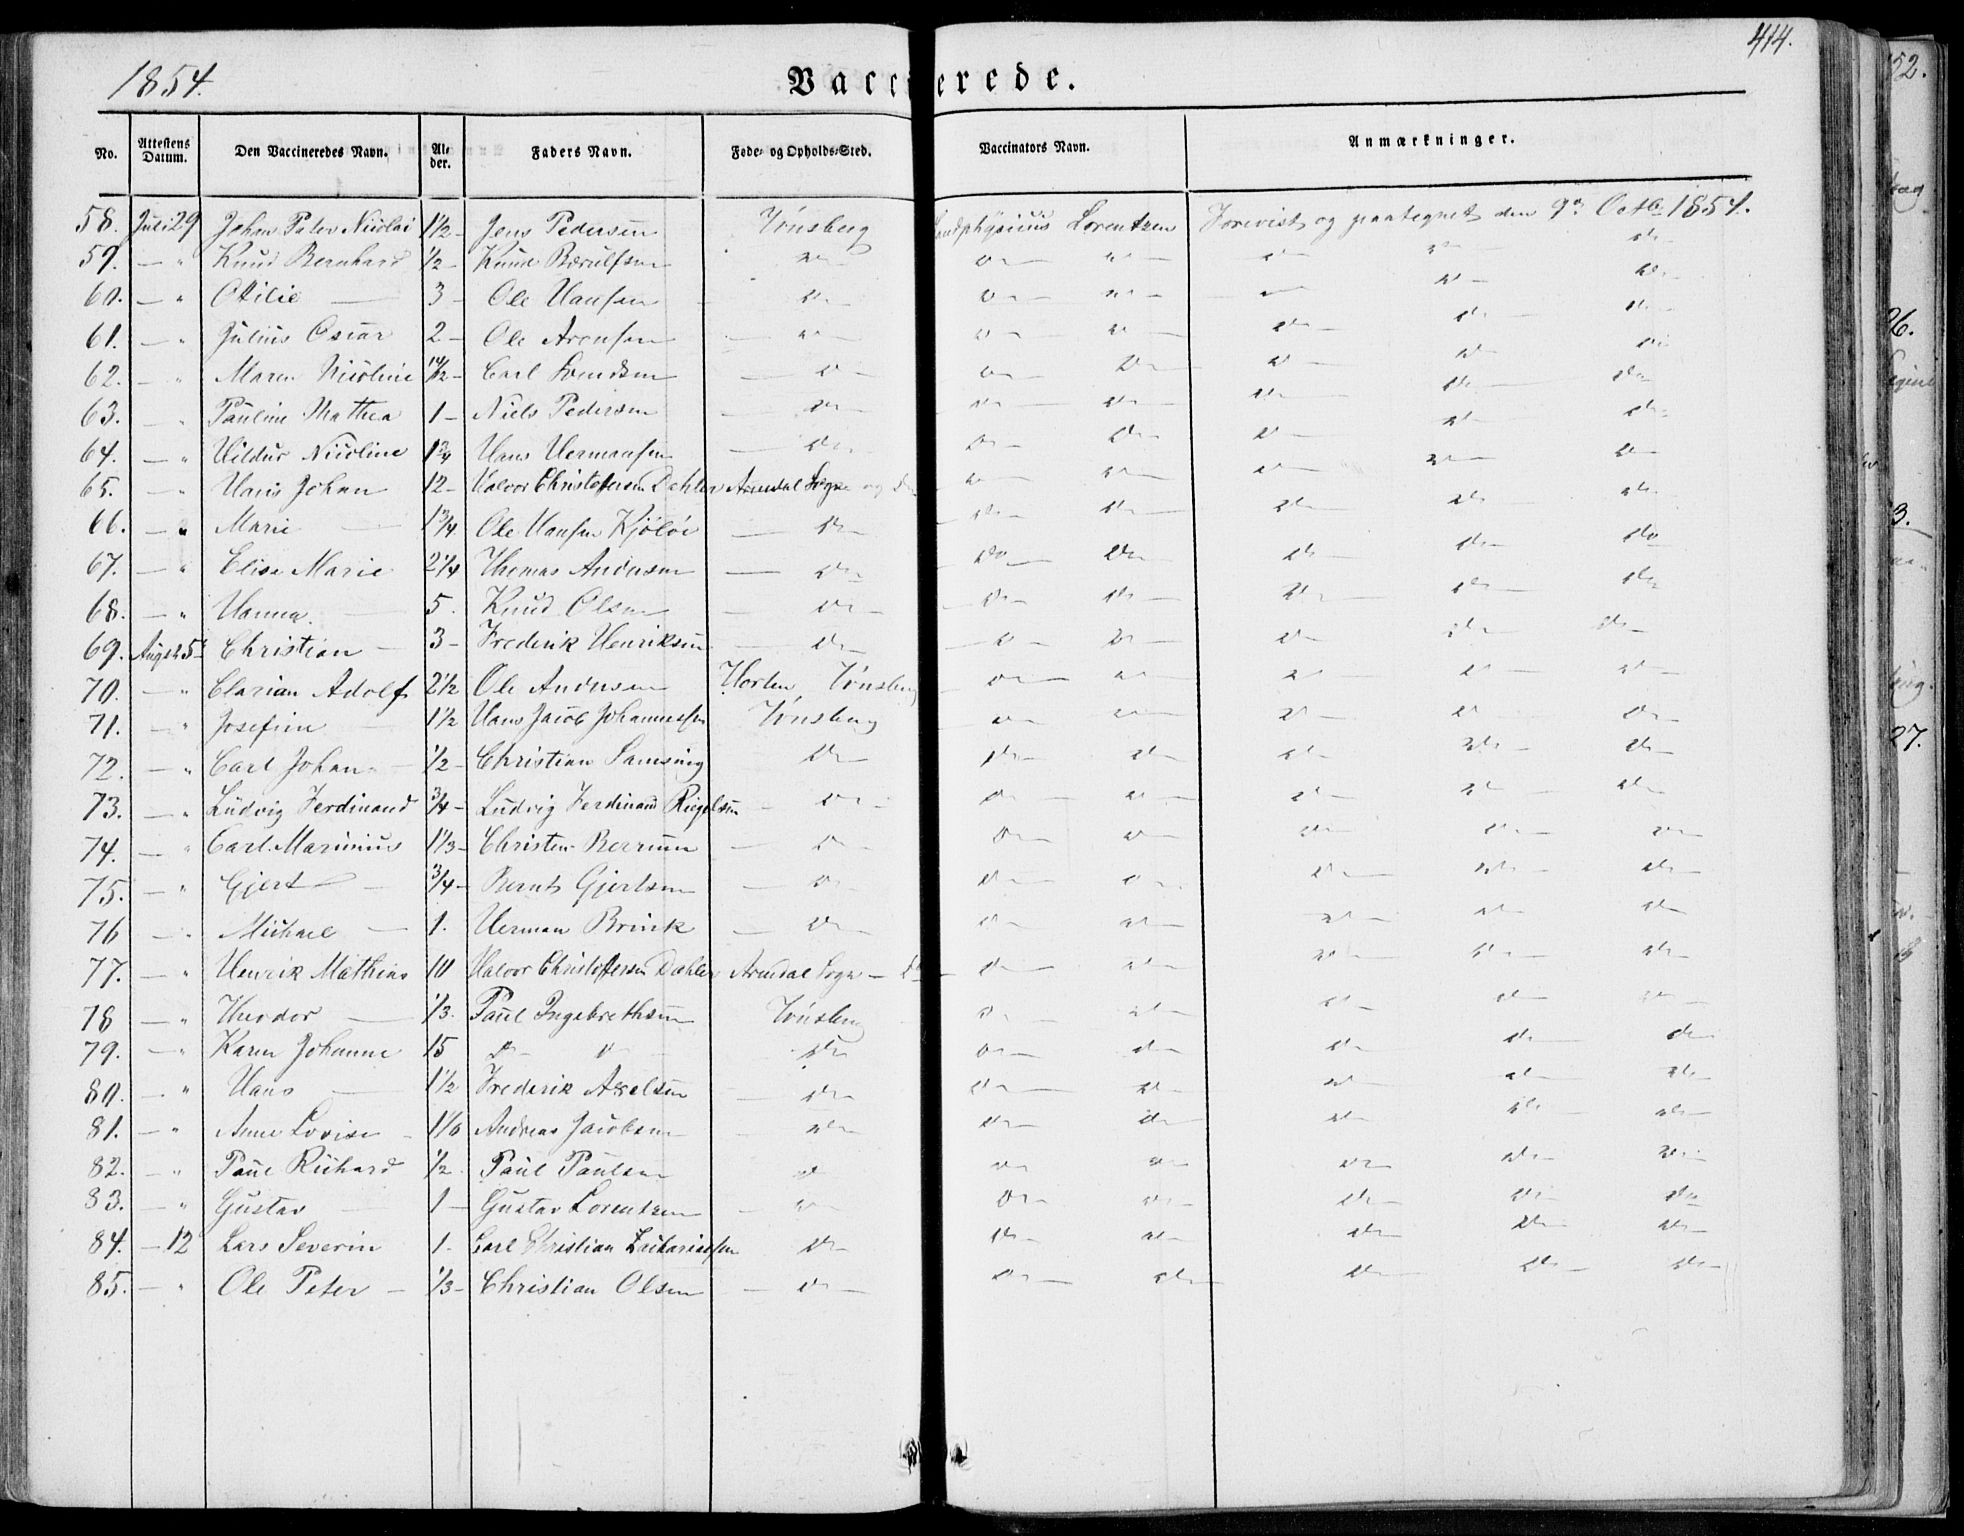 1854.
Vaccinerede.
414.
No. Attestens Datum. Den Vaccineredes Navn. Alder. Faders Navn. Føde- og Opholds-Sted. Vaccinators Navn. Anmærkninger.
58. Juli 29 Johan Peter Nicolai 1½ - Jens Pedersen Tønsberg Landphysicus Lorentzen Forevist og paategnet den 9de Octbr 1854.
59. — " Knud Bernhard ½ - Knud Berulfsen do do do do do do
60. — " Otilie — 3 - Ole Hansen do do do do do do
61. — " Julius Oscar 2 - Ole Arensen do do do do do do
62. — " Maren Nicoline 1½ - Carl Svendsen do do do do do do
63. — " Pauline Mathea 1 - Niels Pedersen do do do do do do
64. — " Hildur Nicoline 1¾ Hans Hermansen do do do do do do
65. — " Hans Johan 12 - Halvor Christofersen Dahler Arendal Sogn og do do do do do do
66. — " Marie — 1¾ Ole Hansen Kjøløe — do do do do do do
67. — " Elise Marie 2¼ Thomas Andersen — do do do do do do
68. — " Hanna. 5. Knud Olsen — do do do do do do
69. Augst 5 Christian — 3 - Frederik Henriksen — do do do do do do
70. — " Clarian Adolf 2½ Ole Andersen Horten, Tønsberg do do do do do
71. — " Josefine 1½ Hans Jacob Johannessen Tønsberg do do do do do
72. — " Carl Johan — ½ - Christian Samsing do do do do do do
73. — " Ludvig Ferdinand ¾ - Ludvig Ferdinand Riegelsen do do do do do do
74. — " Carl Marinius 1⅓ - Christen Berrum — do do do do do do
75. — " Gjert — ¾ - Bernt Gjertsen — do do do do do do
76 — " Michael — 1. Herman Brink — do do do do do do
77. — " Henrik Mathias 10 Halvor Christofersen Dahler Arendal Sogn — do do do do do do
78 — " Theodor — ⅓. Paul Ingebrethsen Tønsberg do do do do do
79. — " Karen Johanne 15 do do do do do do do do
80. — " Hans — 1½ Frederik Axelsen — do do do do do do
81. — " Anne Lovise 1⅙ Andreas Jacobsen — do do do do do do
82. — " Paul Richard ½ Paul Paulsen do do do do do do
83. — " Gustav 1 — Gustav Lorentzen — do do do do do do
84. — 12 Lars Severin 1. Carl Christian Zachariassen do do do do do do
85. — " Ole Peter — ⅓ - Christian Olsen — do — do do do do do